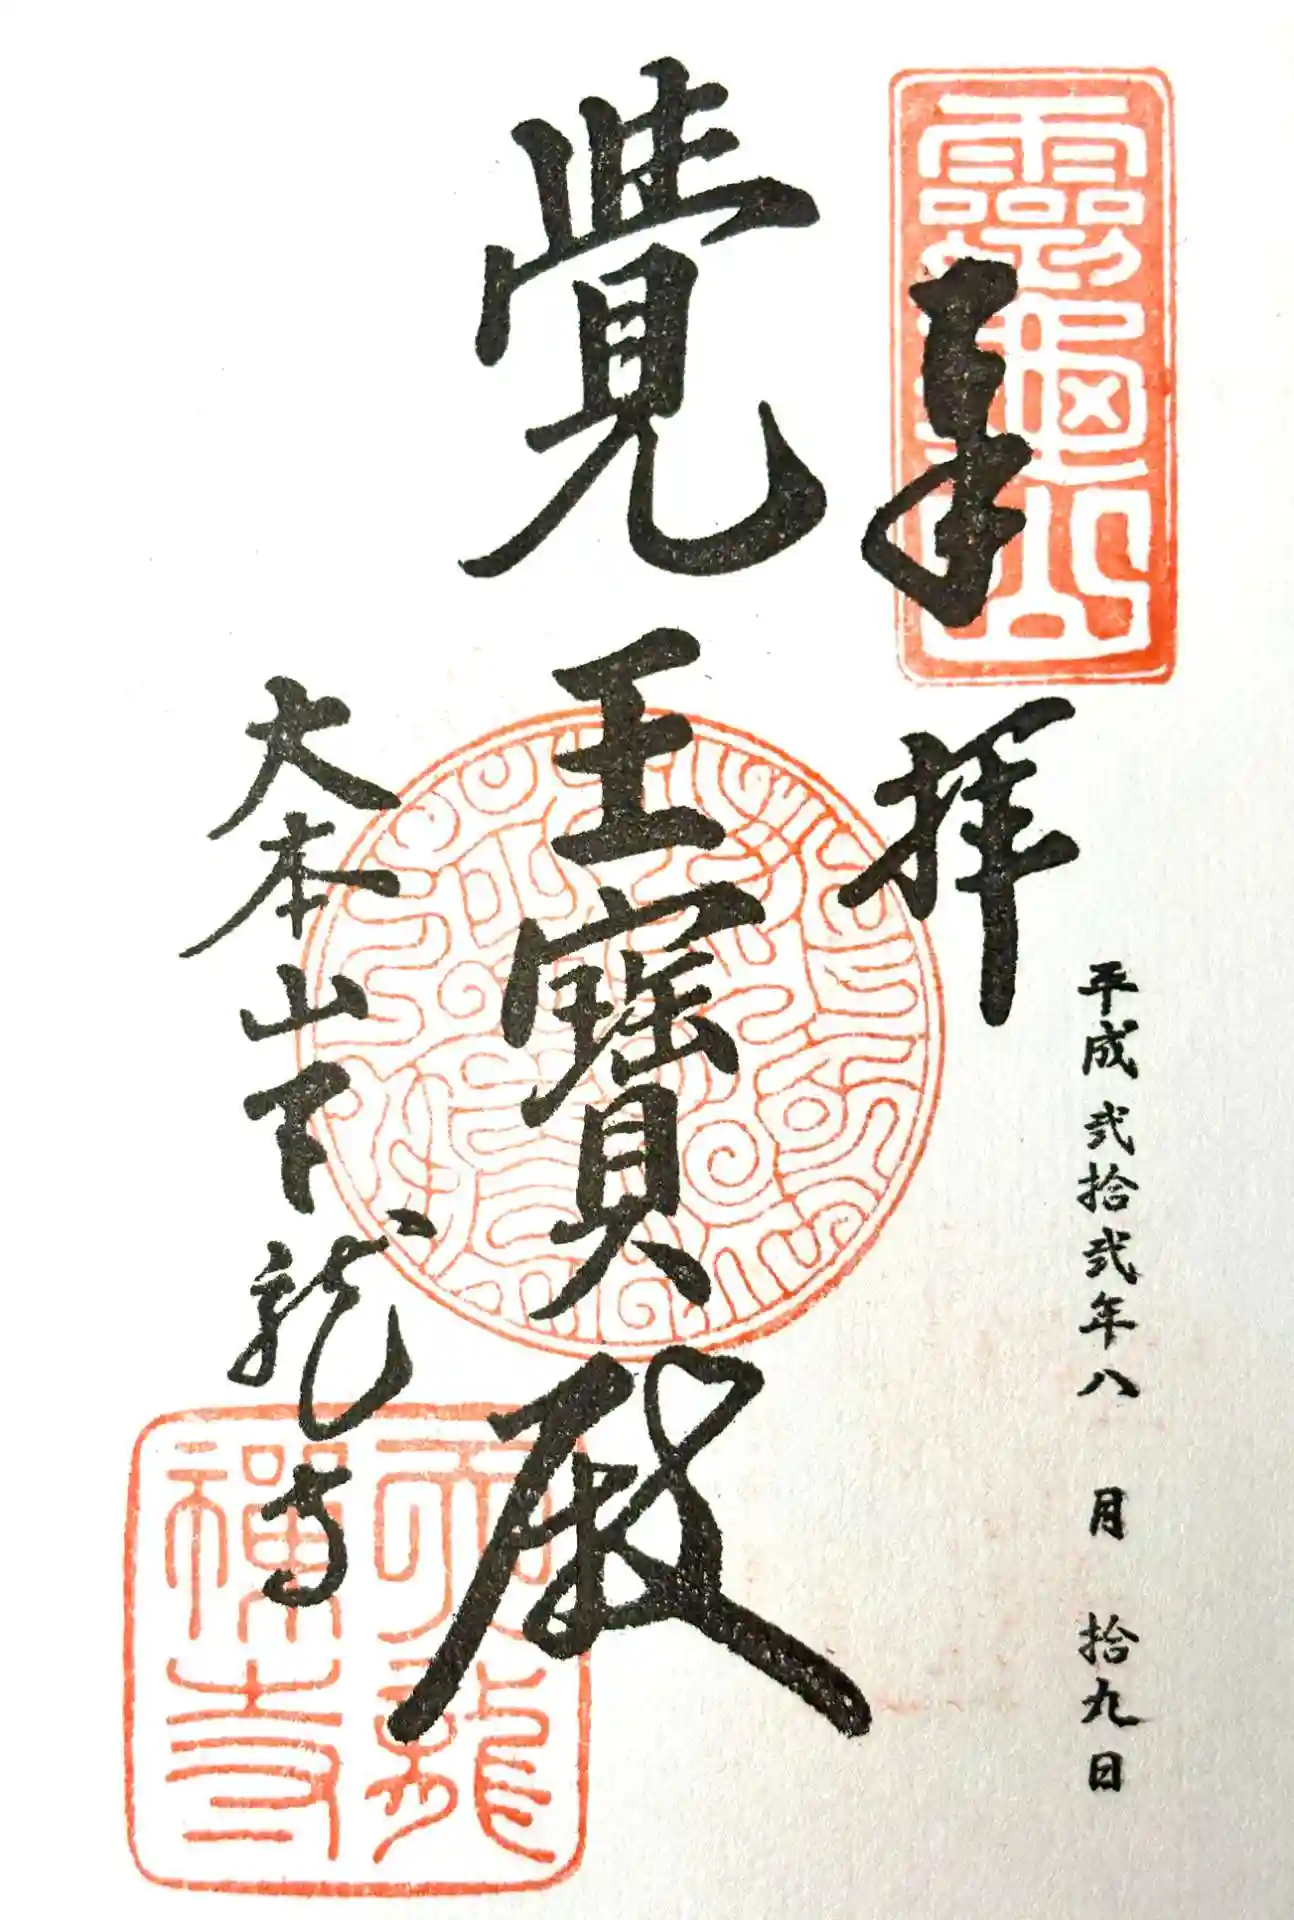 平成弐拾弐年八月拾九日
奉拝
覺王寶殿
大本山天龍寺
靈龜山
天龍
禅寺